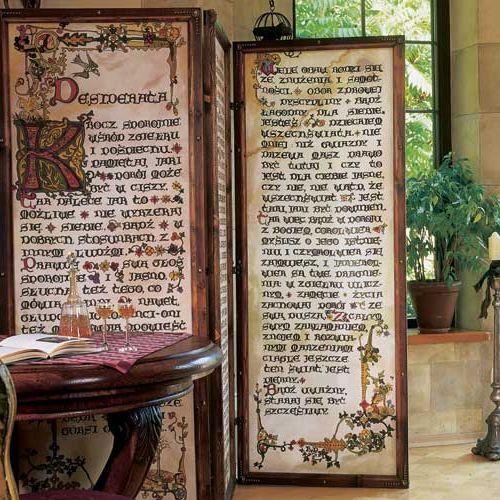 Desiderata
Krocz spokojnie
wśród zgiełku
i pośpiechu
pamiętaj jaki
pokój może
być w ciszy.
Tak dalece jak to
możliwe nie wyrzekaj
się siebie bądź w
dobrych stosunkach z
innymi ludźmi
Prawdę swą głoś
spokojnie i jasno.
Słuchaj też tego co
mówią inni nawet
głupcy i ignoranci oni
też mają swą opowieść
Wiele obaw rodzi się
ze znużenia i samot-
ności. Obok zdrowej
dyscypliny bądź
łagodny dla siebie.
Jesteś dzieckiem
wszechświata nie
mniej niż gwiazdy i
drzewa masz prawo
być tutaj i czy to
jest dla ciebie jasne
czy nie nie wątp że
wszechświat jest
taki jaki być powinien
Tak więc bądź w pokoju
z Bogiem cokolwiek
myślisz o jego istnie-
niu i czymkolwiek się
zajmujesz i jakiekol-
wiek są twe pragnie-
nia w zgiełku ulicz-
nym zamęcie życia
zachowaj pokój ze
swą duszą z całym
swym zakłamaniem
znojem i rozwia-
nymi marzeniami
ciągle jeszcze
ten świat jest
piękny
Bądź uważny
staraj się być
szczęśliwy